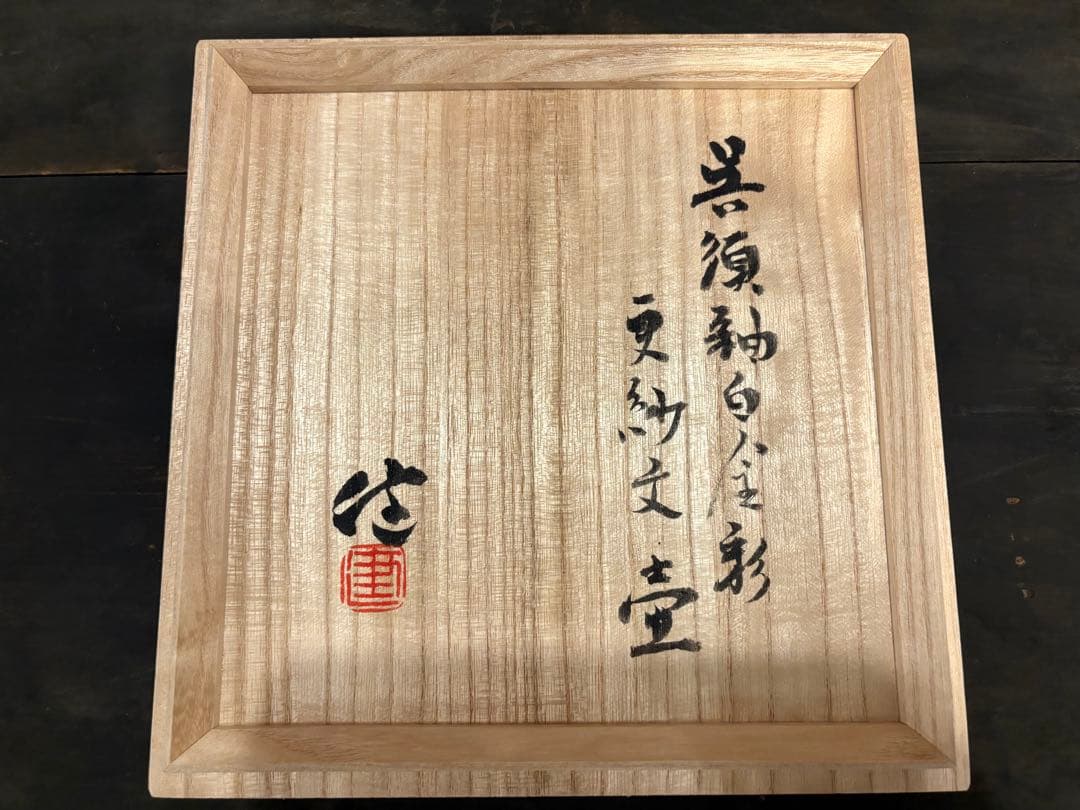 呉須釉白金彩
更紗文壷